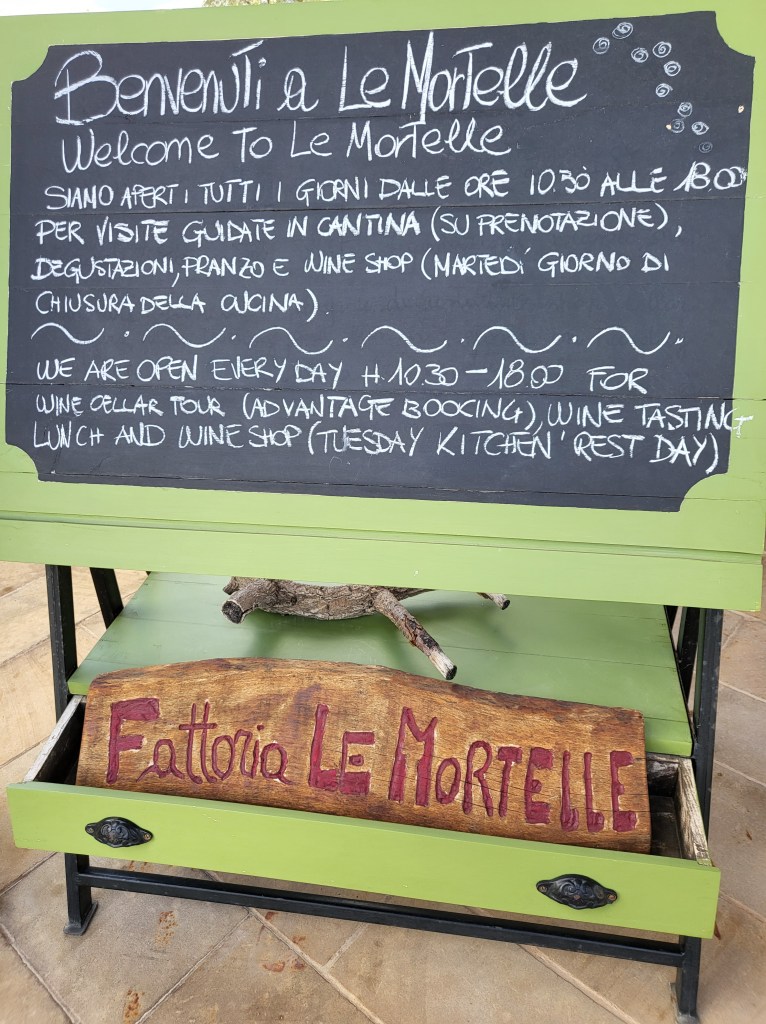 Benvenuti a Le Mortelle
Welcome to Le Mortelle
SIAMO APERTI TUTTI I GIORNI DALLE ORE 10.30 ALLE 18.00
PER VISITE GUIDATE IN CANTINA (SU PRENOTAZIONE),
DEGUSTAZIONI, PRANZO E WINE SHOP (MARTEDÌ GIORNO DI
CHIUSURA DELLA CUCINA).
WE ARE OPEN EVERY DAY H. 10.30 - 18.00 FOR
WINE CELLAR TOUR (ADVANTAGE BOOCING), WINE TASTING
LUNCH AND WINE SHOP (TUESDAY KITCHEN' REST DAY)
Fattoria LE MORTELLE